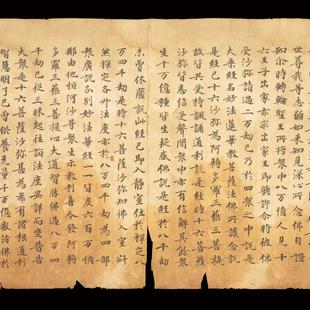 世尊我等志願如來知見深心所念佛自證
知尒時轉輪聖王所將衆中八万億人見十
六王子出家亦求出家王即聽許尒時彼佛
受沙弥請過二万劫已乃於四衆之中說是
大乘經名妙法蓮華教菩薩法佛所護念說
是經已十六沙弥為阿耨多羅三藐三菩提
故皆共受持諷誦通利說是經時十六菩薩
沙弥皆悉信受聲聞衆中亦有信解其餘衆
生千万億種皆生疑惑佛說是經於八千劫
未曾休廢說此經已即入靜室住於禪定八
万四千劫是時十六菩薩沙弥知佛入室寂
然禪定各昇法座亦於八万四千劫為四部
衆廣說分別妙法華經一一皆度六百万億
那由他恒河沙等衆生示教利喜令發阿耨
多羅三藐三菩提心大通智勝佛過八万四
千劫已從三昧起往詣法座安詳而坐普告
大衆是十六菩薩沙弥甚為希有諸根通利
智慧明了已曾供養无量千万億數諸佛於